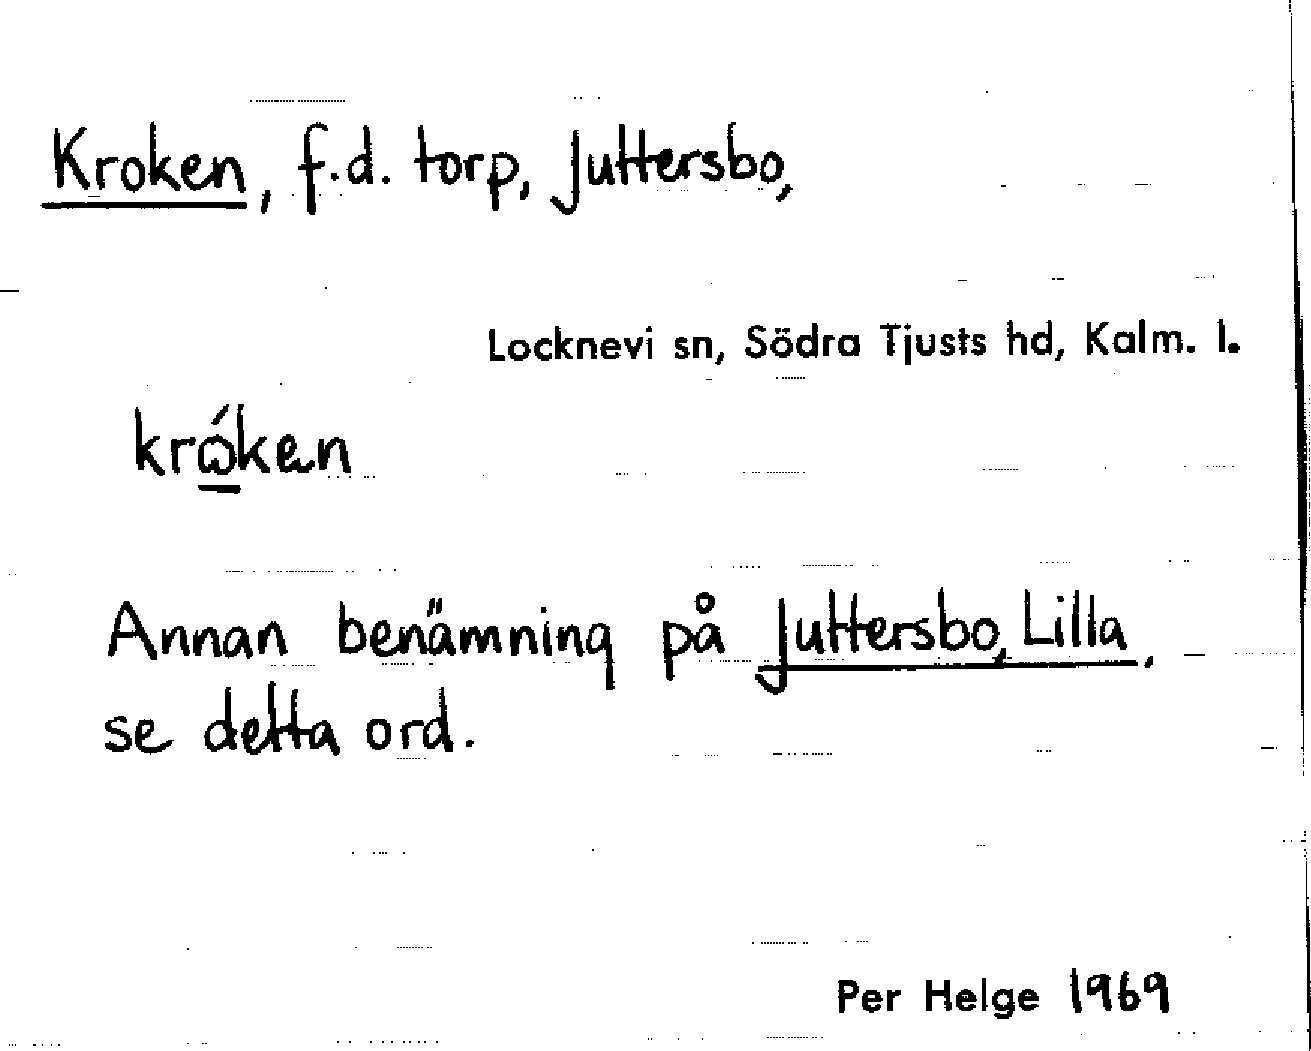 Kroken, f.d. torp, Juttersbo,
Locknevi sn, Södra Tjusts hd, Kalm. l.
Annan benämning på Juttersbo, Lilla,
se detta ord.
Per Helge 1969